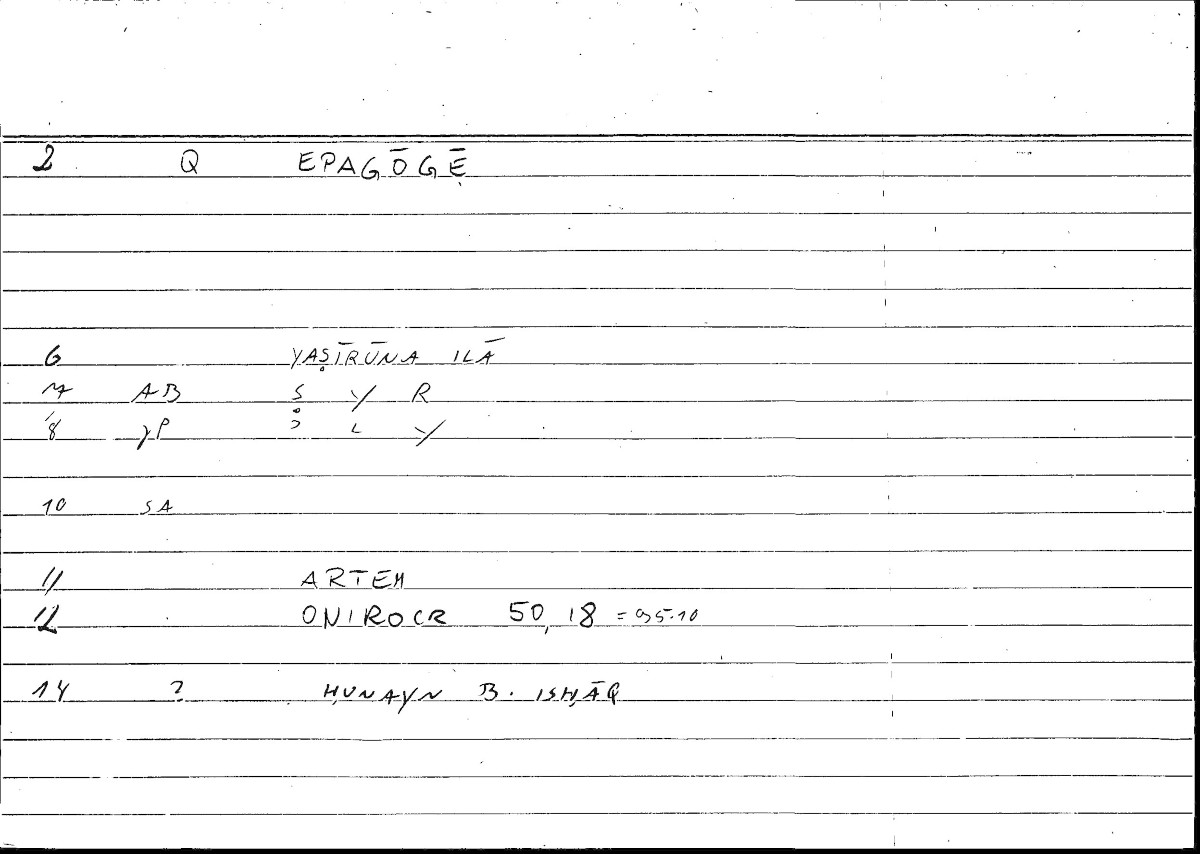 2 Q EPAGŌGĒ
6 YAṢĪRŪNA ILĀ
7 AB Ṣ Y R
8 γP ʾ L Y
10 SA
11 ARTEM
12 ONIROCR 50,18 = 95.10
14 ? ḤUNAYN B. ISḤĀQ